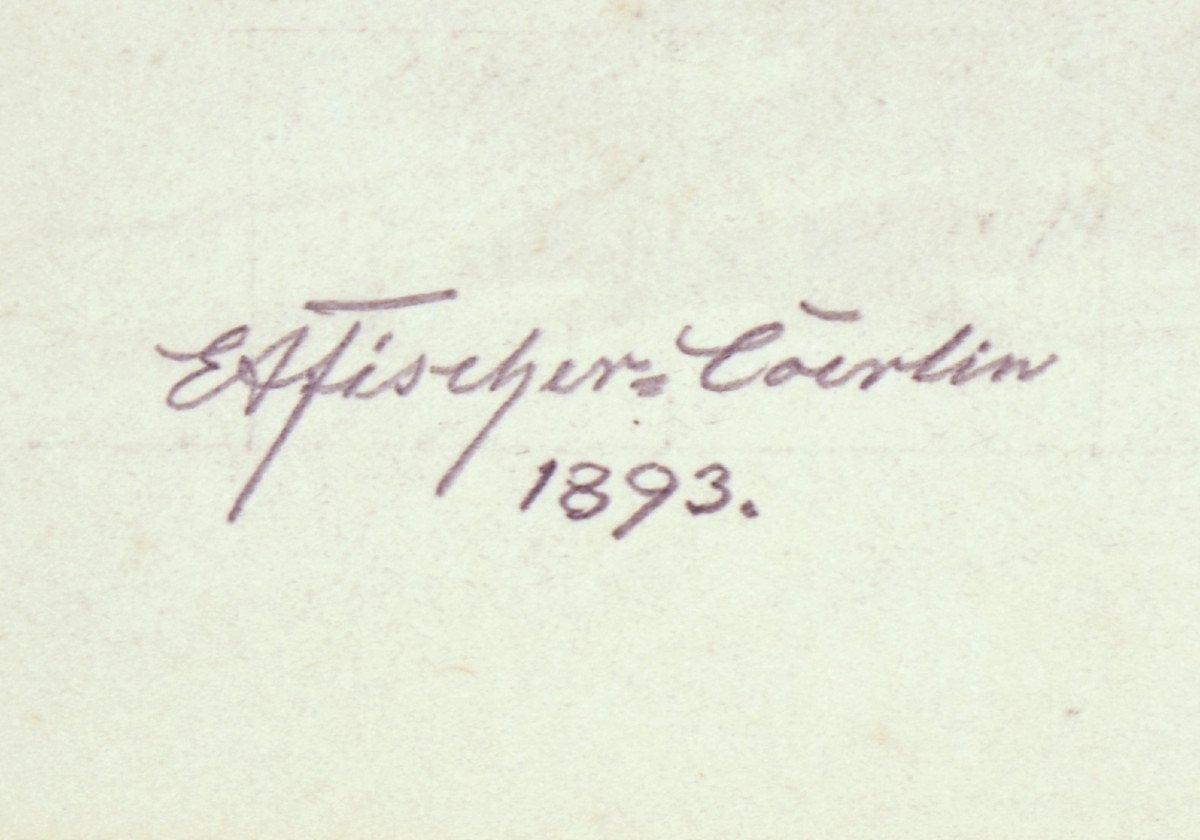 EAFischer=Cörlin
1893.